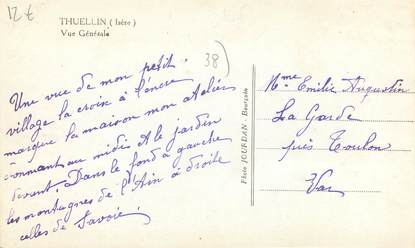 12 €
THUELLIN (Isère)
Vue Générale
38)
Une vue de mon petit
village la croix à l'encre
marque la maison mon atelier
donnant au midi et le jardin
devant. Dans le fond à gauche
les montagnes de l'Ain à droite
celles de Savoie.
Photo JOURDAN - Bourgoin
Mme Emilie Augustin
La Garde
près Toulon
Var